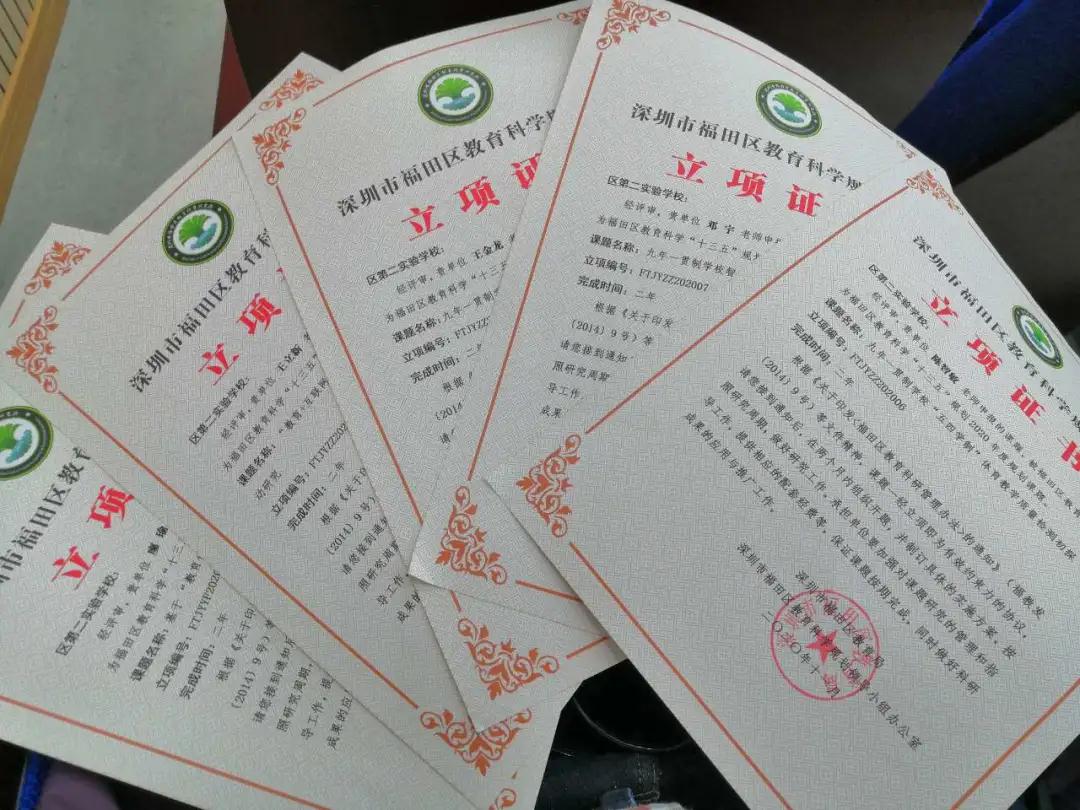 市福田区教
立项
区第二实验学校:
经评审,贵单位
为福田区教育科学“十三
课题名称:基于“教育
立项编号:FTJYYP2020
完成时间:二年
根据《关于印
(2014)9号)
请您接到通知
照研究周期,
导工作,提
成果的应
深圳市福田区教育科
立项
区第二实验学校:
经评审,贵单位 王立新
为福田区教育科学“十三五
课题名称:“教育·互联网
动研究
立项编号:FTJYZZ202
完成时间:二年
根据《关于印
(2014)9号)
请您接到通知
照研究周期
导工作
成果的
深圳市福田区教育科学规
立项证
区第二实验学校:
经评审,贵单位 王金龙
为福田区教育科学“十三五
课题名称:九年一贯制
立项编号:FTJYZZ
完成时间:二
根据
(2014
请
深圳市福田区教育科学规
立项证
区第二实验学校:
经评审,贵单位 邓宇 老师申
为福田区教育科学“十三五”规
课题名称:九年一贯制学校智
立项编号:FTJYZZ02007
完成时间:二年
根据《关于印发
(2014)9号)等
请您接到通知
照研究周期
导工作,
成果
深圳市福田区教育科学
立项证书
区第二实验学校:
经评审,贵单位 陈智敏 老师申报的课题,被福田区教育
为福田区教育科学“十三五”规划2020年度规划课题。
课题名称:九年一贯制学校“五四学制”体育教学质量检测初探
立项编号:FTJYZZ202006
完成时间:二年
根据《关于印发〈福田区教育科研管理办法〉的通知》(福教发
(2014)9号)等文件精神,课题一经立项即为有效约束力的协议,
请您接到通知后,在两个月内组织开题,并制订具体的实施方案,按
照研究周期,做好研究工作。承担单位要加强对课题研究的管理和指
导工作,提供相应的配套经费等,保证课题按期完成,同时做好科研
成果的应用与推广工作。
深圳市福田区教育局
深圳市福田区教育科学规划领导小组办公室
二〇二〇年十一月